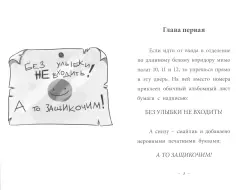 БЕЗ УЛЫБКИ
НЕ ВХОДИТЬ!
А ТО ЗАЩИКОЧИМ!
Глава первая
Если идти от входа в отделение
по длинному белому коридору мимо
палат 10, 11 и 12, то упрёшься прямо
в эту дверь. На ней вместо номера
приклеен обычный альбомный лист
бумаги с надписью:
БЕЗ УЛЫБКИ НЕ ВХОДИТЬ!
А снизу – смайлик и добавлено
неровными печатными буквами:
А ТО ЗАЩИКОЧИМ!